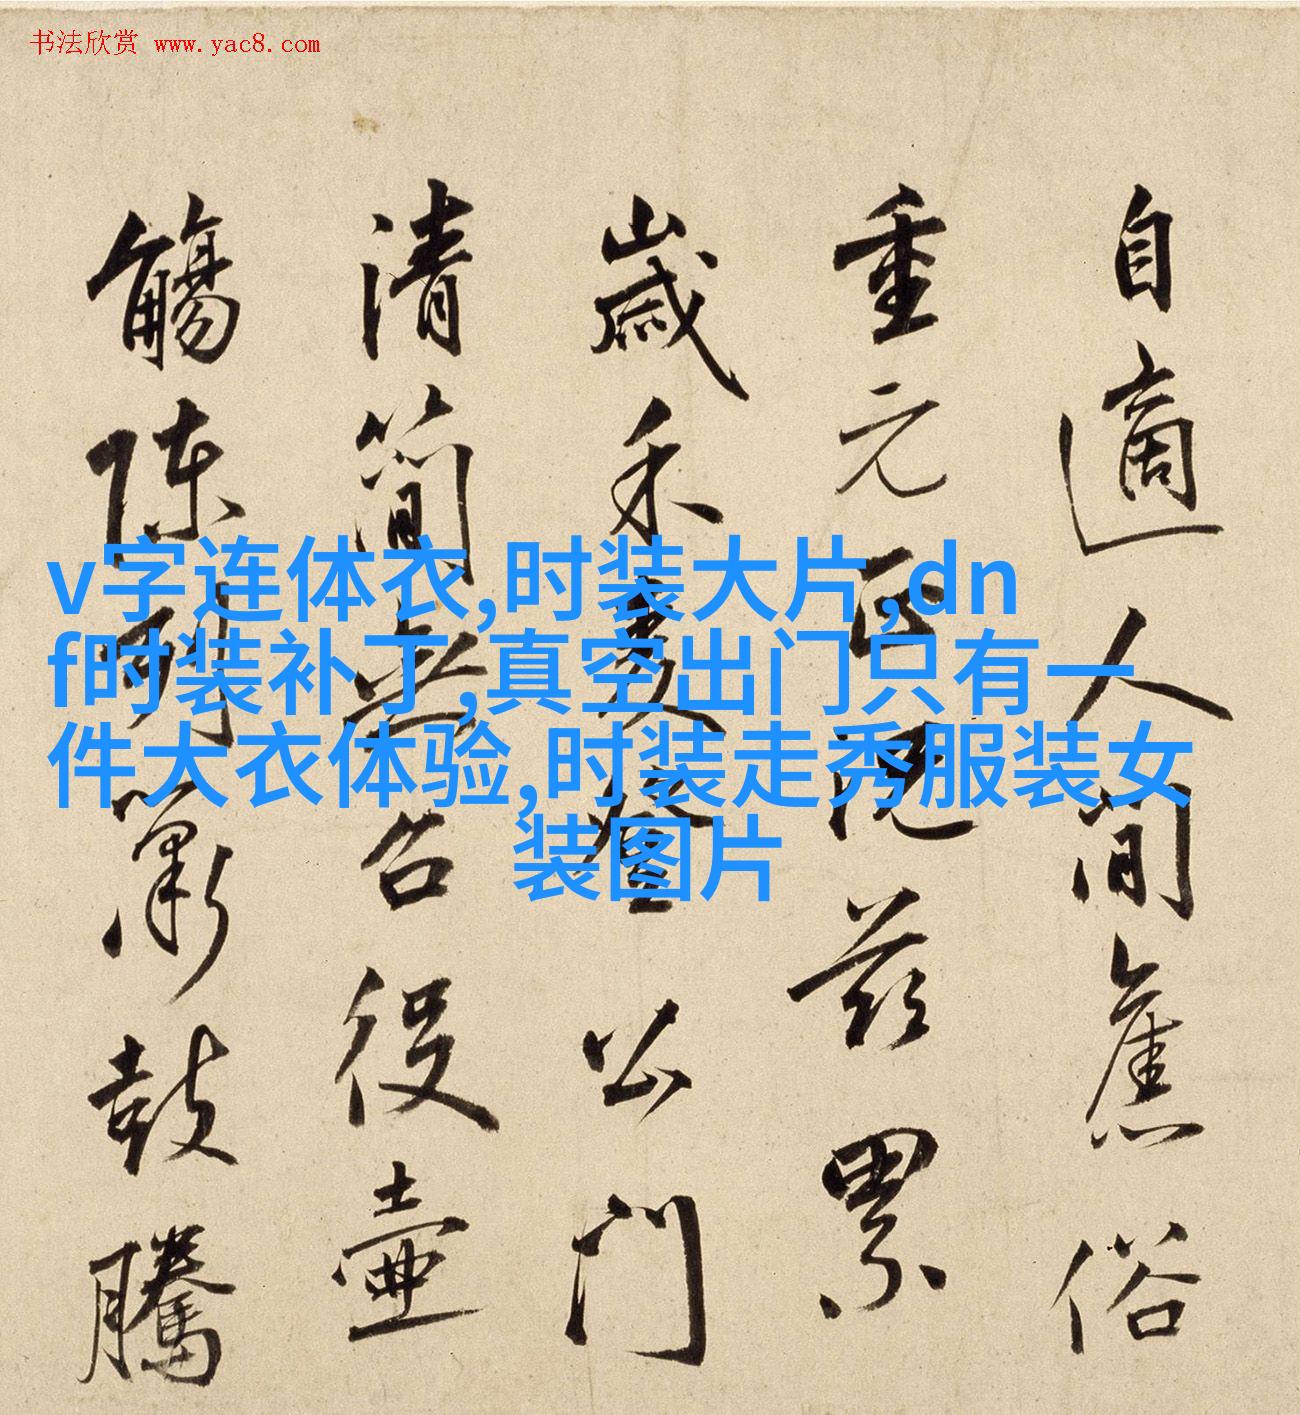 书法欣赏 www.yac8.com
v字连体衣,时装大片,dn
f时装补丁,真空出门只有一
件大衣体验,时装走秀服装女
装图片
自適人间舊俗
重元正况兹累
歲禾麦登公門
清简無召役壷
觴陳列簫鼓騰